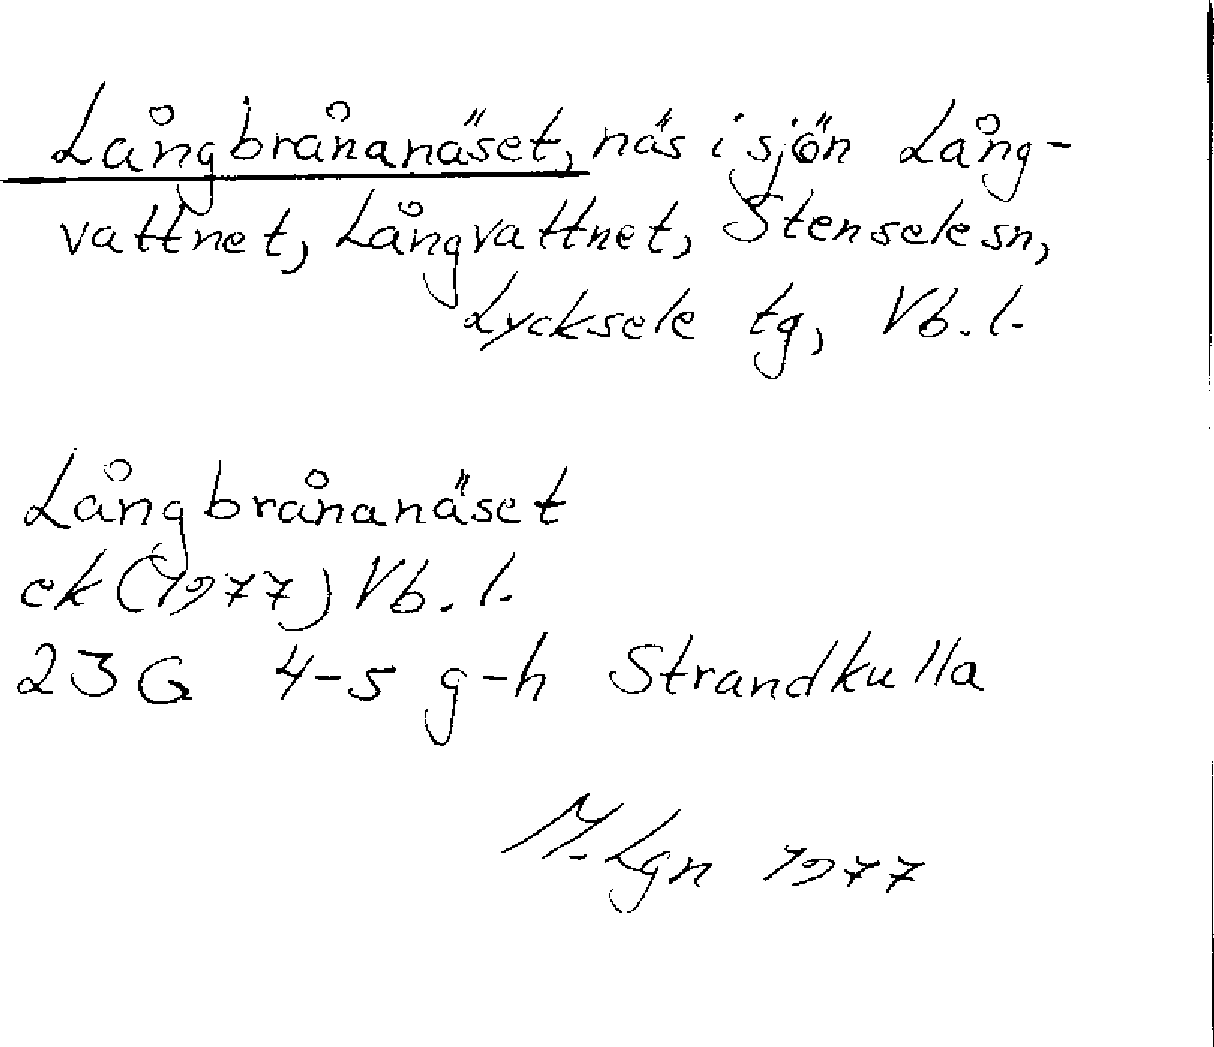 Långbrånanäset, näs i sjön Lång-
vattnet, Långvattnet, Stensele sn,
Lycksele tg, Vb. l.
Långbrånanäset
ek (1977) Vb. l.
23 G 4-5 g-h Strandkulla
M. Lgn 1977